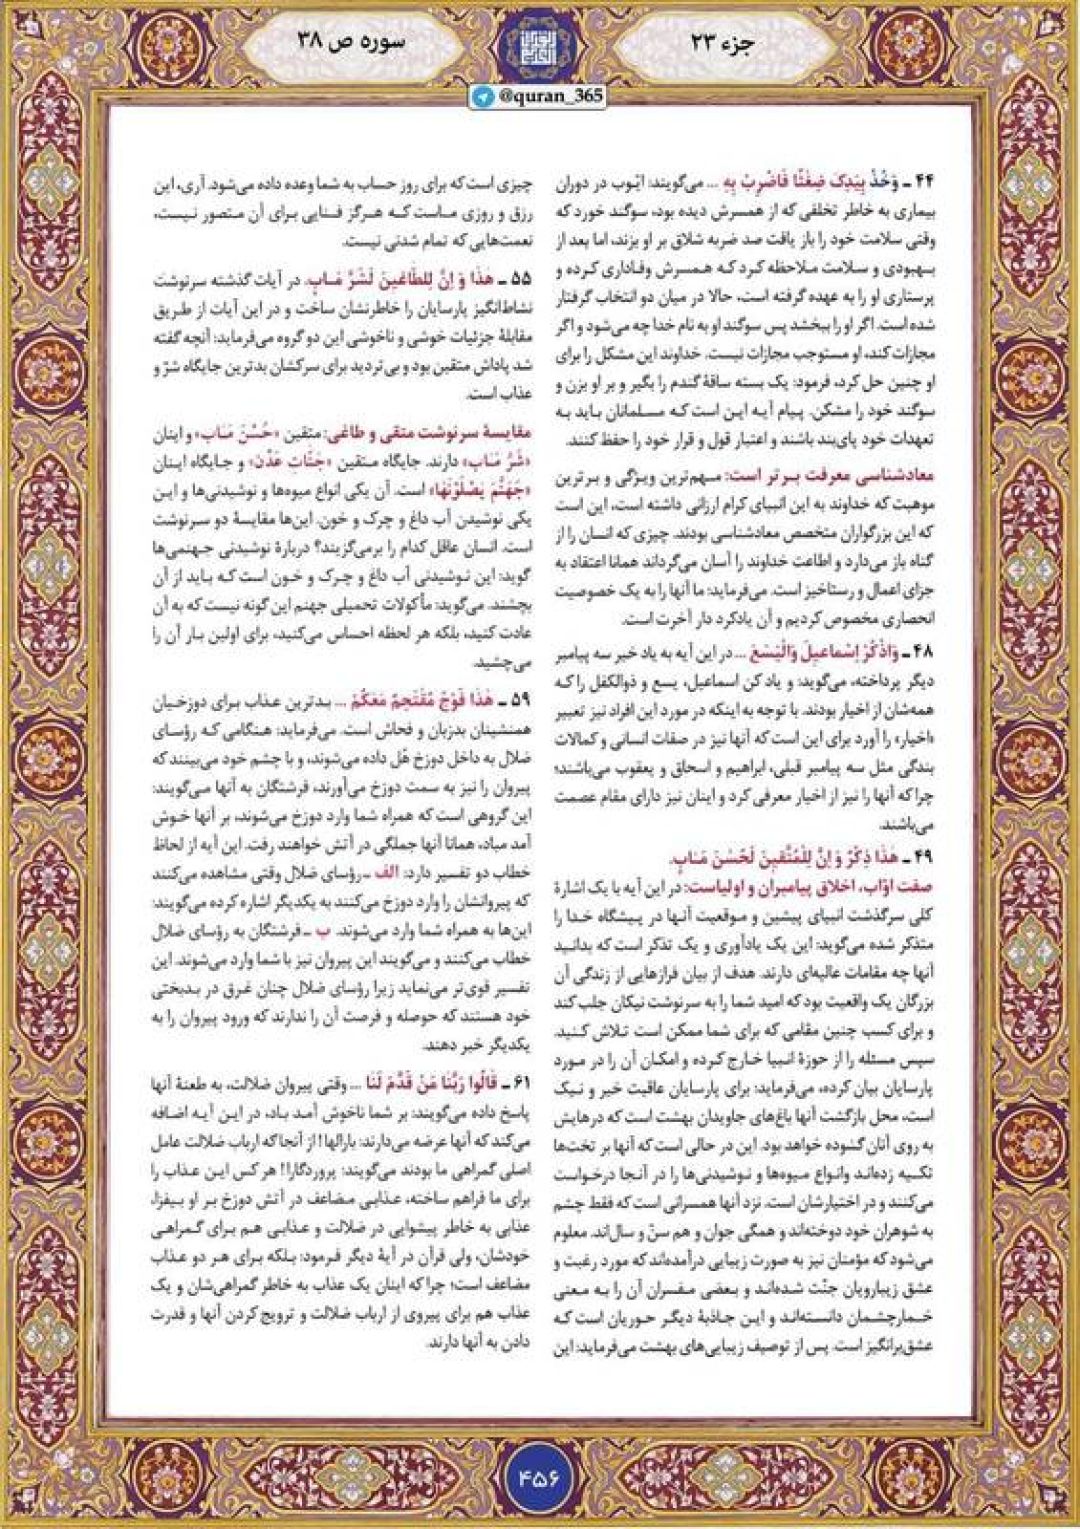 جزء ۲۳
سوره ص ۳۸
@quran_365
۴۴ ـ وَخُذْ بِیَدِکَ ضِغْثًا فَاضْرِبْ بِهِ ... می‌گویند: ایّوب در دوران
بیماری به خاطر تخلفی که از همسرش دیده بود، سوگند خورد که
وقتی سلامت خود را باز یافت صد ضربه شلاق بر او بزند، اما بعد از
بهبودی و سلامت ملاحظه کرد که همسرش وفاداری کرده و
پرستاری او را به عهده گرفته است، حالا در میان دو انتخاب گرفتار
شده است. اگر او را ببخشد پس سوگند او به نام خدا چه می‌شود و اگر
مجازات کند، او مستوجب مجازات نیست. خداوند این مشکل را برای
او چنین حل کرد، فرمود: یک بسته ساقهٔ گندم را بگیر و بر او بزن و
سوگند خود را مشکن. پیام آیه این است که مسلمانان باید به
تعهدات خود پای‌بند باشند و اعتبار قول و قرار خود را حفظ کنند.
معادشناسی معرفت برتر است: مهم‌ترین ویژگی و برترین
موهبت که خداوند به این انبیای کرام ارزانی داشته است، این است
که این بزرگواران متخصص معادشناسی بودند. چیزی که انسان را از
گناه باز می‌دارد و اطاعت خداوند را آسان می‌گرداند همانا اعتقاد به
جزای اعمال و رستاخیز است. می‌فرماید: ما آنها را به یک خصوصیت
انحصاری مخصوص کردیم و آن یادکرد دار آخرت است.
۴۸ ـ وَاذْکُرْ اِسْماعیلَ وَالْیَسَعَ ... در این آیه به یاد خیر سه پیامبر
دیگر پرداخته، می‌گوید: و یاد کن اسماعیل، یسع و ذوالکفل را که
همه‌شان از اخیار بودند. با توجه به اینکه در مورد این افراد نیز تعبیر
«اخیار» را آورد برای این است که آنها نیز در صفات انسانی و کمالات
بندگی مثل سه پیامبر قبلی، ابراهیم و اسحاق و یعقوب می‌باشند؛
چرا که آنها را نیز از اخیار معرفی کرد و اینان نیز دارای مقام عصمت
می‌باشند.
۴۹ ـ هَذَا ذِکْرٌ وَ اِنَّ لِلْمُتَّقینَ لَحُسْنَ مَـابٍ.
صفت اوّاب، اخلاق پیامبران و اولیاست: در این آیه با یک اشارهٔ
کلی سرگذشت انبیای پیشین و موقعیت آنها در پیشگاه خدا را
متذکر شده می‌گوید: این یک یادآوری و یک تذکر است که بدانید
آنها چه مقامات عالیه‌ای دارند. هدف از بیان فرازهایی از زندگی آن
بزرگان یک واقعیت بود که امید شما را به سرنوشت نیکان جلب کند
و برای کسب چنین مقامی که برای شما ممکن است تلاش کنید.
سپس مسئله را از حوزهٔ انبیا خارج کرده و امکان آن را در مورد
پارسایان بیان کرده، می‌فرماید: برای پارسایان عاقبت خیر و نیک
است، محل بازگشت آنها باغ‌های جاویدان بهشت است که درهایش
به روی آنان گشوده خواهد بود. این در حالی است که آنها بر تخت‌ها
تکیه زده‌اند و انواع میوه‌ها و نوشیدنی‌ها را در آنجا درخواست
می‌کنند و در اختیارشان است. نزد آنها همسرانی است که فقط چشم
به شوهران خود دوخته‌اند و همگی جوان و هم سنّ و سال‌اند. معلوم
می‌شود که مؤمنان نیز به صورت زیبایی درآمده‌اند که مورد رغبت و
عشق زیبارویان جنّت شده‌اند و بعضی مفسران آن را به معنی
خمارچشمان دانسته‌اند و این جاذبهٔ دیگر حوریان است که
عشق‌برانگیز است. پس از توصیف زیبایی‌های بهشت می‌فرماید: این
چیزی است که برای روز حساب به شما وعده داده می‌شود. آری، این
رزق و روزی ماست که هرگز فنایی برای آن متصور نیست،
نعمت‌هایی که تمام شدنی نیست.
۵۵ ـ هَذَا وَ اِنَّ لِلطّاغینَ لَشَرَّ مَـابٍ. در آیات گذشته سرنوشت
نشاط‌انگیز پارسایان را خاطرنشان ساخت و در این آیات از طریق
مقابلهٔ جزئیات خوشی و ناخوشی این دو گروه می‌فرماید: آنچه گفته
شد پاداش متقین بود و بی‌تردید برای سرکشان بدترین جایگاه شرّ و
عذاب است.
مقایسهٔ سرنوشت متقی و طاغی: متقین «حُسْنَ مَـابٍ» و اینان
«شَرَّ مَـابٍ» دارند. جایگاه متقین «جَنّاتِ عَدْنٍ» و جایگاه اینان
«جَهَنَّمَ یَصْلَوْنَهَا» است. آن یکی انواع میوه‌ها و نوشیدنی‌ها و این
یکی نوشیدن آب داغ و چرک و خون. این‌ها مقایسهٔ دو سرنوشت
است. انسان عاقل کدام را برمی‌گزیند؟ دربارهٔ نوشیدنی جهنمی‌ها
گوید: این نوشیدنی آب داغ و چرک و خون است که باید از آن
بچشند. می‌گوید: مأکولات تحمیلی جهنم این گونه نیست که به آن
عادت کنید، بلکه هر لحظه احساس می‌کنید، برای اولین بار آن را
می‌چشید.
۵۹ ـ هَذَا فَوْجٌ مُقْتَحِمٌ مَعَکُمْ ... بدترین عذاب برای دوزخیان
همنشینان بدزبان و فحاش است. می‌فرماید: هنگامی که رؤسای
ضلال به داخل دوزخ هُل داده می‌شوند، و با چشم خود می‌بینند که
پیروان را نیز به سمت دوزخ می‌آورند، فرشتگان به آنها می‌گویند:
این گروهی است که همراه شما وارد دوزخ می‌شوند، بر آنها خوش
آمد مباد، همانا آنها جملگی در آتش خواهند رفت. این آیه از لحاظ
خطاب دو تفسیر دارد: الف ـ رؤسای ضلال وقتی مشاهده می‌کنند
که پیروانشان را وارد دوزخ می‌کنند به یکدیگر اشاره کرده می‌گویند:
این‌ها به همراه شما وارد می‌شوند. ب ـ فرشتگان به رؤسای ضلال
خطاب می‌کنند و می‌گویند این پیروان نیز با شما وارد می‌شوند. این
تفسیر قوی‌تر می‌نماید زیرا رؤسای ضلال چنان غرق در بدبختی
خود هستند که حوصله و فرصت آن را ندارند که ورود پیروان را به
یکدیگر خبر دهند.
۶۱ ـ قَالُوا رَبَّنَا مَنْ قَدَّمَ لَنَا ... وقتی پیروان ضلالت، به طعنهٔ آنها
پاسخ داده می‌گویند: بر شما ناخوش آمد باد، در این آیه اضافه
می‌کند که آنها عرضه می‌دارند: بارالها! از آنجا که ارباب ضلالت عامل
اصلی گمراهی ما بودند می‌گویند: پروردگارا! هر کس این عذاب را
برای ما فراهم ساخته، عذابی مضاعف در آتش دوزخ بر او بیفزا،
عذابی به خاطر پیشوایی در ضلالت و عذابی هم برای گمراهی
خودشان، ولی قرآن در آیهٔ دیگر فرمود: بلکه برای هر دو عذاب
مضاعف است؛ چرا که اینان یک عذاب به خاطر گمراهی‌شان و یک
عذاب هم برای پیروی از ارباب ضلالت و ترویج کردن آنها و قدرت
دادن به آنها دارند.
۴۵۶